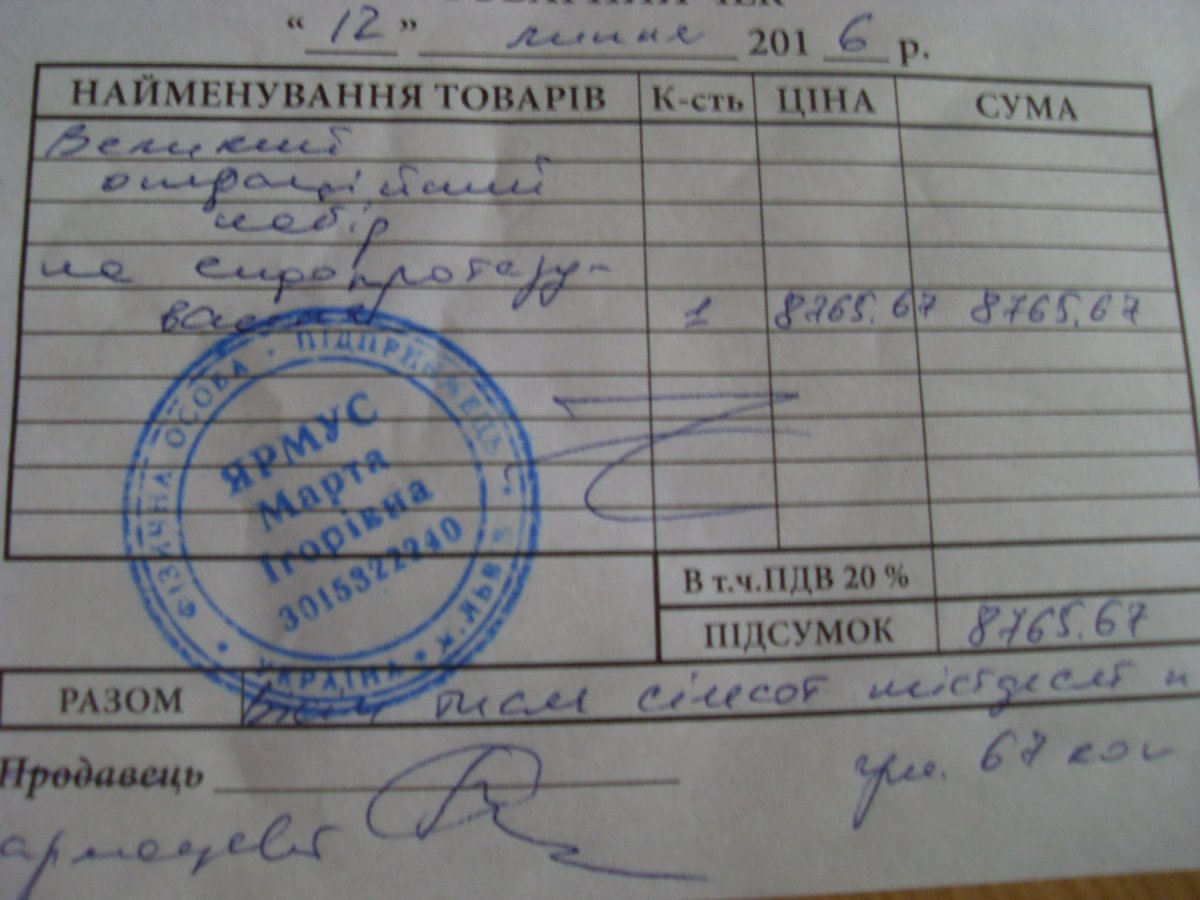 ТОВАРНИЙ ЧЕК
“ 12 ” липня 2016 р.
НАЙМЕНУВАННЯ ТОВАРІВ К-сть ЦІНА СУМА
Великий
операційний
набір
на ендопротезу-
вання 1 8765.67 8765,67
ФІЗИЧНА ОСОБА · ПІДПРИЄМЕЦЬ
ЯРМУС
Марта
Ігорівна
3015322240
УКРАЇНА • м. ЛЬВІВ
В т.ч.ПДВ 20 %
ПІДСУМОК 8765.67
РАЗОМ Вісім тисяч сімсот шістдесят п
Продавець
грн. 67 коп